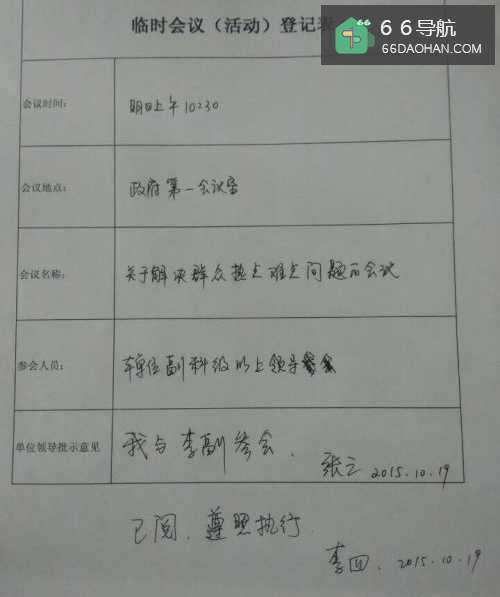 临时会议（活动）登记表
66导航
66DAOHAN.COM
会议时间：
明日上午10:30
会议地点：
政府第一会议室
会议名称：
关于解决群众热点难点问题的会议
参会人员：
单位副科级以上领导
单位领导批示意见
我与李副参会.
张三 2015.10.19
已阅.遵照执行.
李四. 2015.10.19